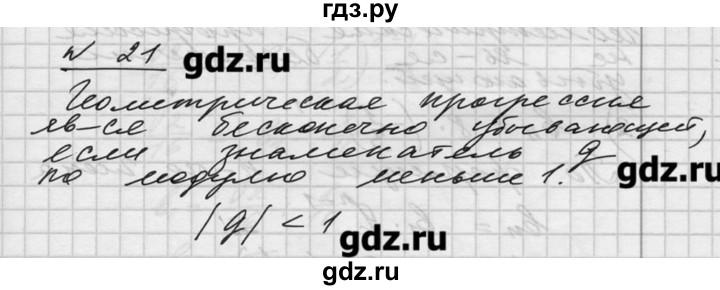 гдз.ру
№ 21 gdz.ru
Геометрическая прогрессия
яв-ся бесконечно убывающей,
если знаменатель q
по модулю меньше 1. gdz.ru
|q| < 1 gdz.ru
gdz.ru